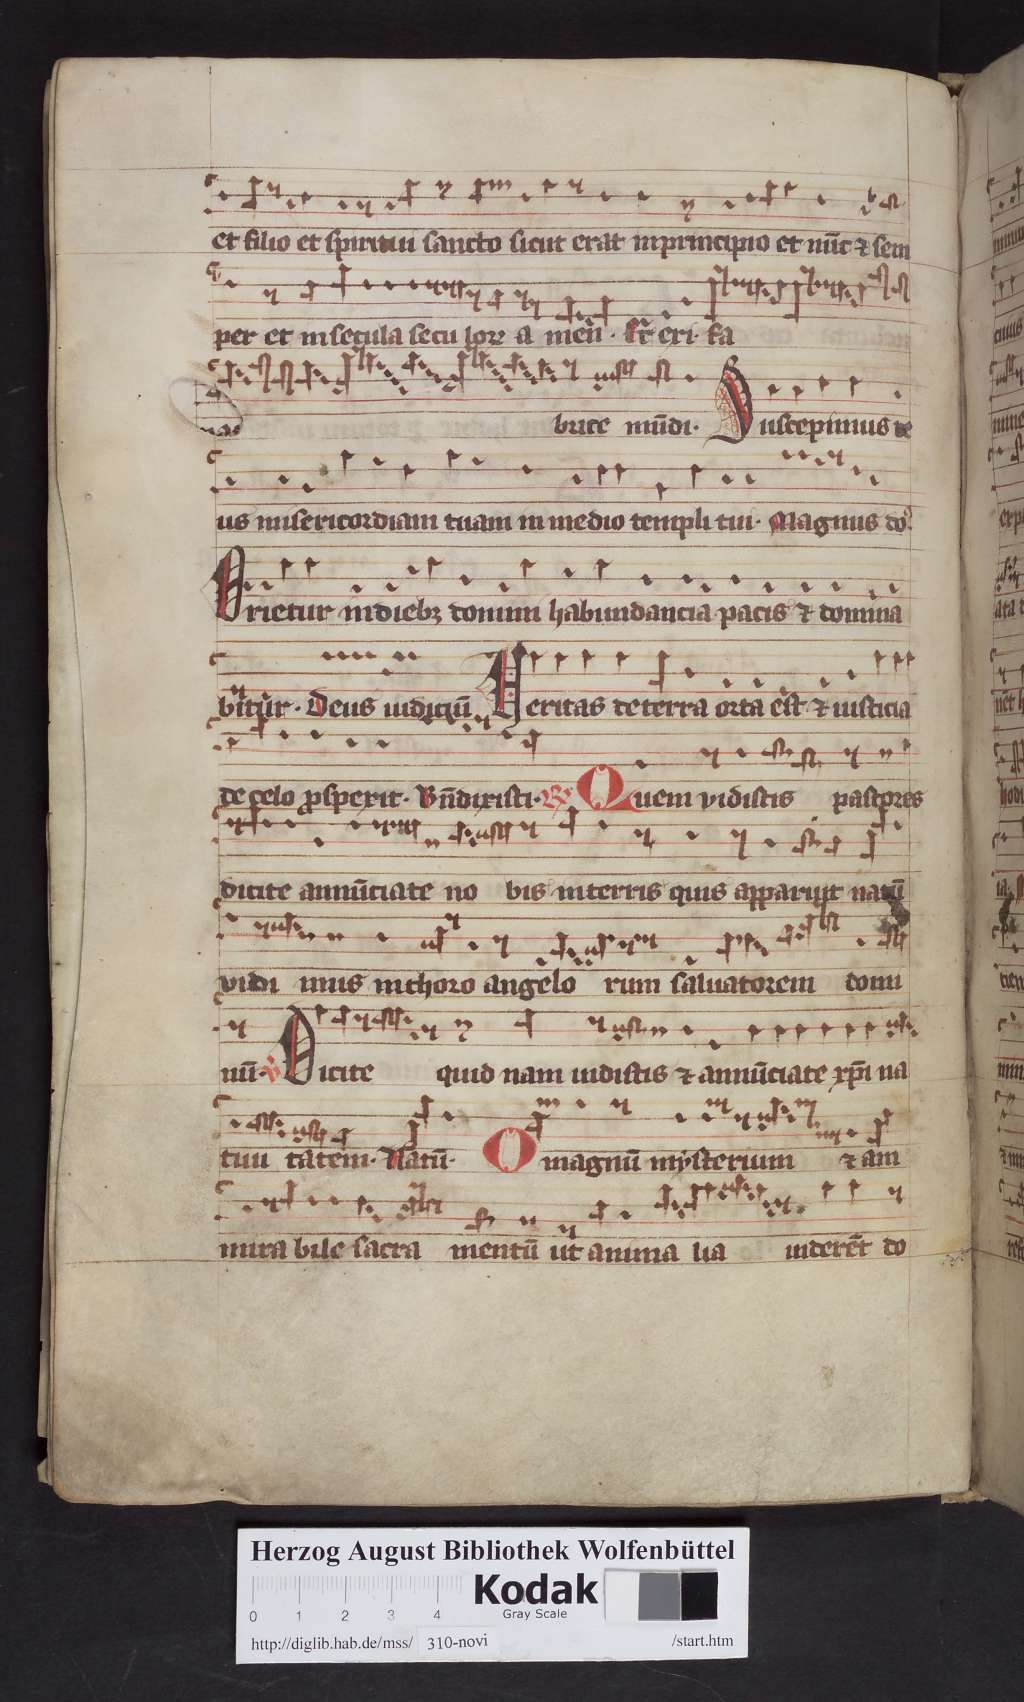 et filio et spiritui sancto sicut erat inprincipio et nūc ⁊ sem
per et insecula secu lorꝝ a men. et eri. fa
brice mūdi. Suscepimus de
us misericordiam tuam in medio templi tui. Magnus do.
Orietur indiebꝫ domini habundancia pacis ⁊ domina
bitur. Deus iudiciū Veritas deterra orta est ⁊ iusticia
de celo ꝓspexit. Bn̄dixisti. R̄ Quem vidistis pastores
dicite annūciate no bis interris quis apparuit natū
vidi mus inchoro angelo rum saluatorem domi
nū. v̄ Dicite quid nam uidistis ⁊ annūciate xp̄i na
tiui tatem. Natū. O magnū mysterium ⁊ am
mira bile sacra mentū ut anima lia uiderēt do
Herzog August Bibliothek Wolfenbüttel
Kodak
Gray Scale
0 1 2 3 4
http://diglib.hab.de/mss/ 310-novi /start.htm